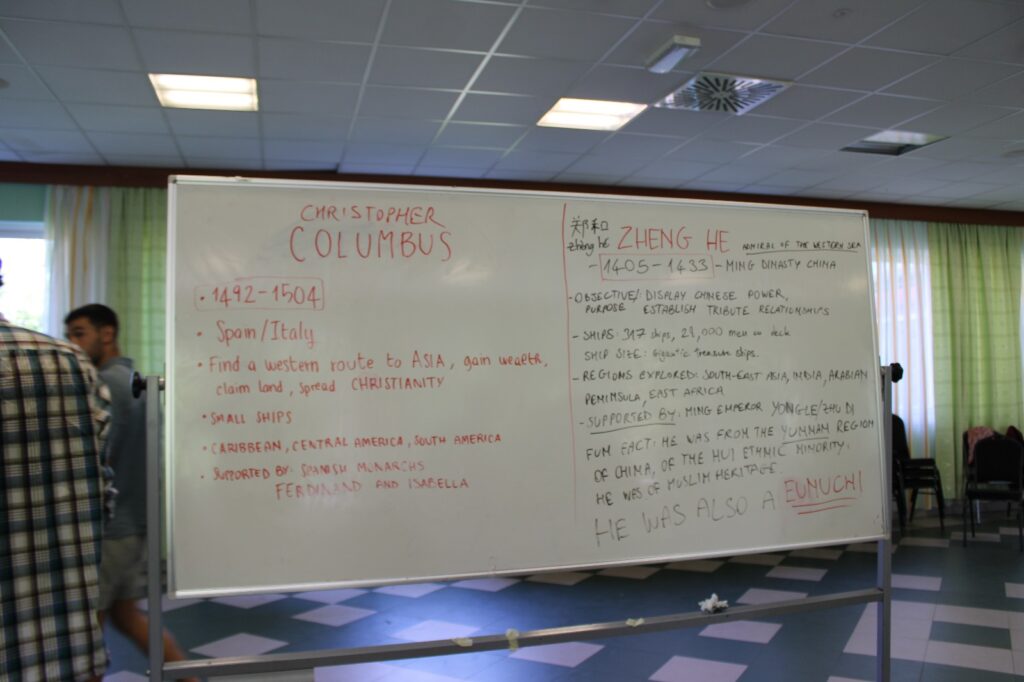 CHRISTOPHER
COLUMBUS
• 1492-1504
• Spain/Italy
• Find a western route to ASIA, gain wealth,
claim land, spread CHRISTIANITY
• SMALL SHIPS
• CARIBBEAN, CENTRAL AMERICA, SOUTH AMERICA
• SUPPORTED BY: SPANISH MONARCHS
FERDINAND AND ISABELLA
郑和
zhèng hé ZHENG HE ADMIRAL OF THE WESTERN SEA
- 1405-1433 - MING DINASTY CHINA
- OBJECTIVE/: DISPLAY CHINESE POWER,
PURPOSE ESTABLISH TRIBUTE RELATIONSHIPS
- SHIPS: 317 ships, 28,000 men on deck
SHIP SIZE: Gigantic treasure ships.
- REGIONS EXPLORED: SOUTH-EAST ASIA, INDIA, ARABIAN
PENINSULA, EAST AFRICA
- SUPPORTED BY: MING EMPEROR YONGLE/ZHU DI
FUN FACT: HE WAS FROM THE YUMNAM REGION
OF CHINA, OF THE HUI ETHNIC MINORITY.
HE WAS OF MUSLIM HERITAGE.
HE WAS ALSO A EUNUCH!